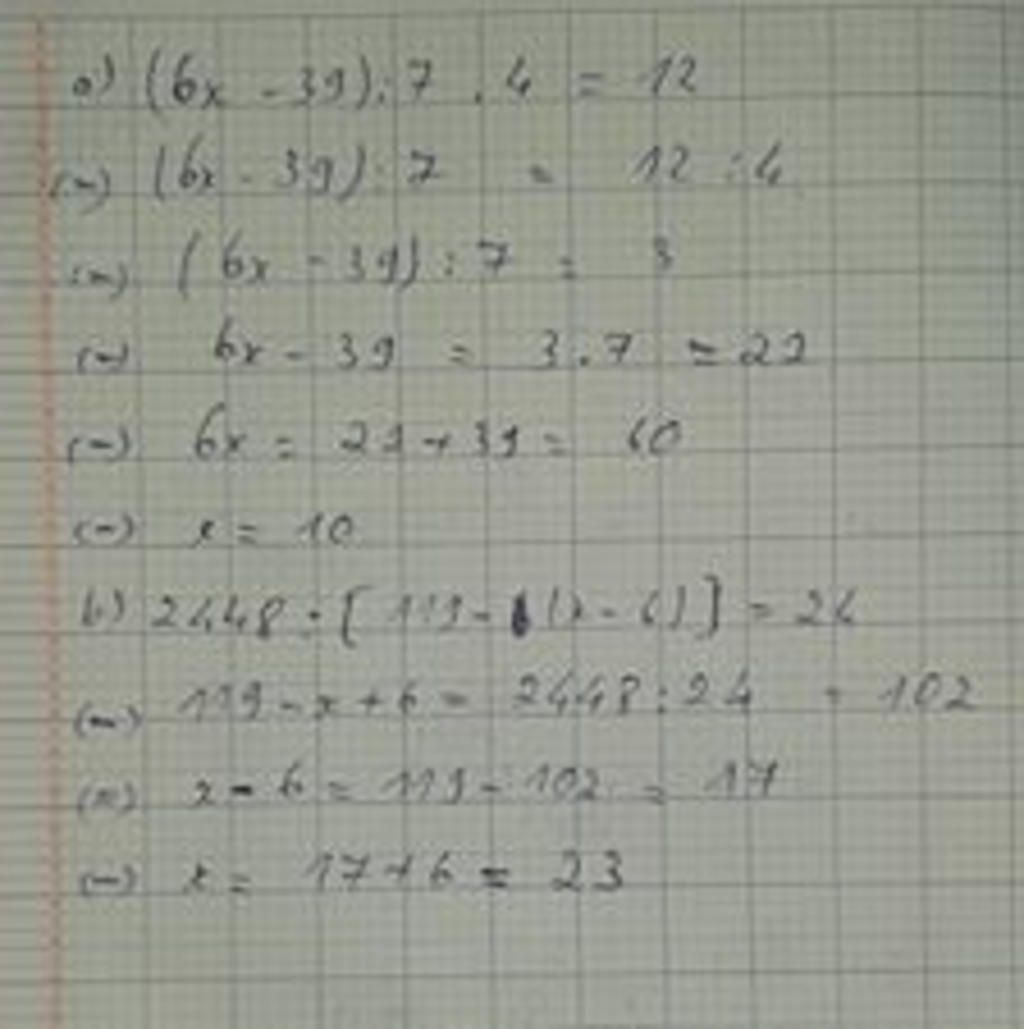 a) (6x - 39) : 7 . 4 = 12
(=) (6x - 39) : 7 = 12 : 4
(=) (6x - 39) : 7 = 3
(=) 6x - 39 = 3 . 7 = 21
(=) 6x = 21 + 39 = 60
(=) x = 10
b) 2448 : [ 119 - (x - 6) ] = 24
(=) 119 - x + 6 = 2448 : 24 = 102
(=) x - 6 = 119 - 102 = 17
(=) x = 17 + 6 = 23